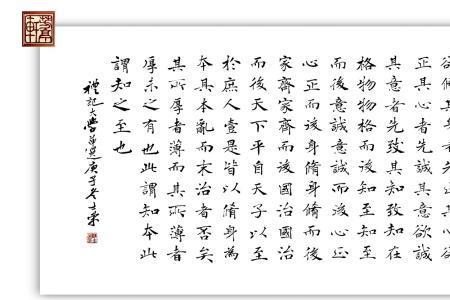 正其心者先誠其意欲誠
其意者先致其知致知在
格物物格而後知至知至
而後意誠意誠而後心正
心正而後身脩身脩而後
家齊家齊而後國治國治
而後天下平自天子以至
於庶人壹是皆以脩身為
本其本亂而末治者否矣
其所厚者薄而其所薄者
厚未之有也此謂知本此
謂知之至也
禮記大學節選庚子冬士